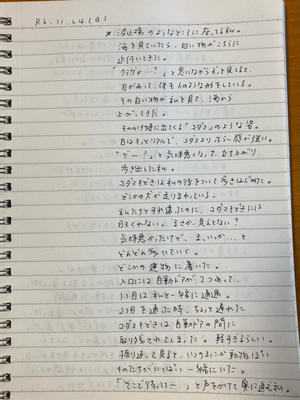 R6.11.24(日)
* 波止場のようなところに座ってる私。
海を見ていたら、白い物がこちらに
近付いてきた。
「クラゲかい…？」と思いながらずっと見てると、
目があって、体も人のような形をしている。
その白い物が私を見て、海から
上がってきた。
もののけ姫に出てくる"コダマ"のような姿。
目はもっとリアルで、コダマよりぷるぷる感が強い。
「ゲー！」と気味悪くなって、立ち上がり
歩き出した私。
コダマもどきは私の後をついて歩きはじめた。
どこかの犬が走りまわっている。
私たちとすれ違ったのに、コダマもどきには
目もくれない。まさか、見えてない？
気味悪かったけど、ま、いいか…と
どんどん歩いていく。
どこかの建物に着いた。
入口には自動ドアが2つあって、
1つ目は私と一緒に通過。
2つ目を通った時、ちょっと遅れた
コダマもどきは、自動ドアの間に
取り残されてしまった。
振り返って見ると、いつのまにか動物ぽい
ものたちがいっぱい一緒にいた。
「そこで待ってて―」と声をかけて奥に進む私。